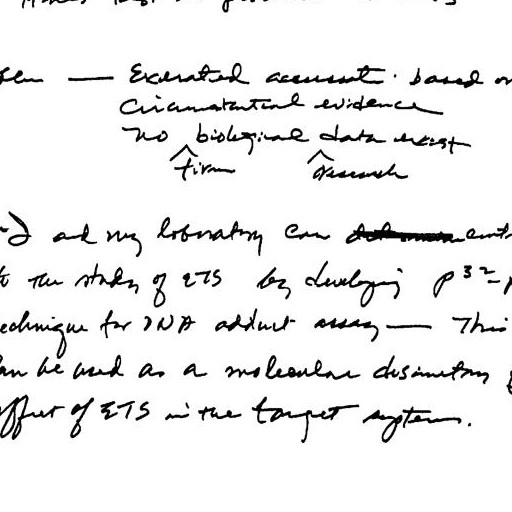 — Exerated assessment. based on
Circumstantial evidence
no biological data exist
firm research
and my laboratory can
to the study of ETS by developing P32-
technique for DNA adduct assay — This
can be used as a molecular dosimetry
effect of ETS in the target system.